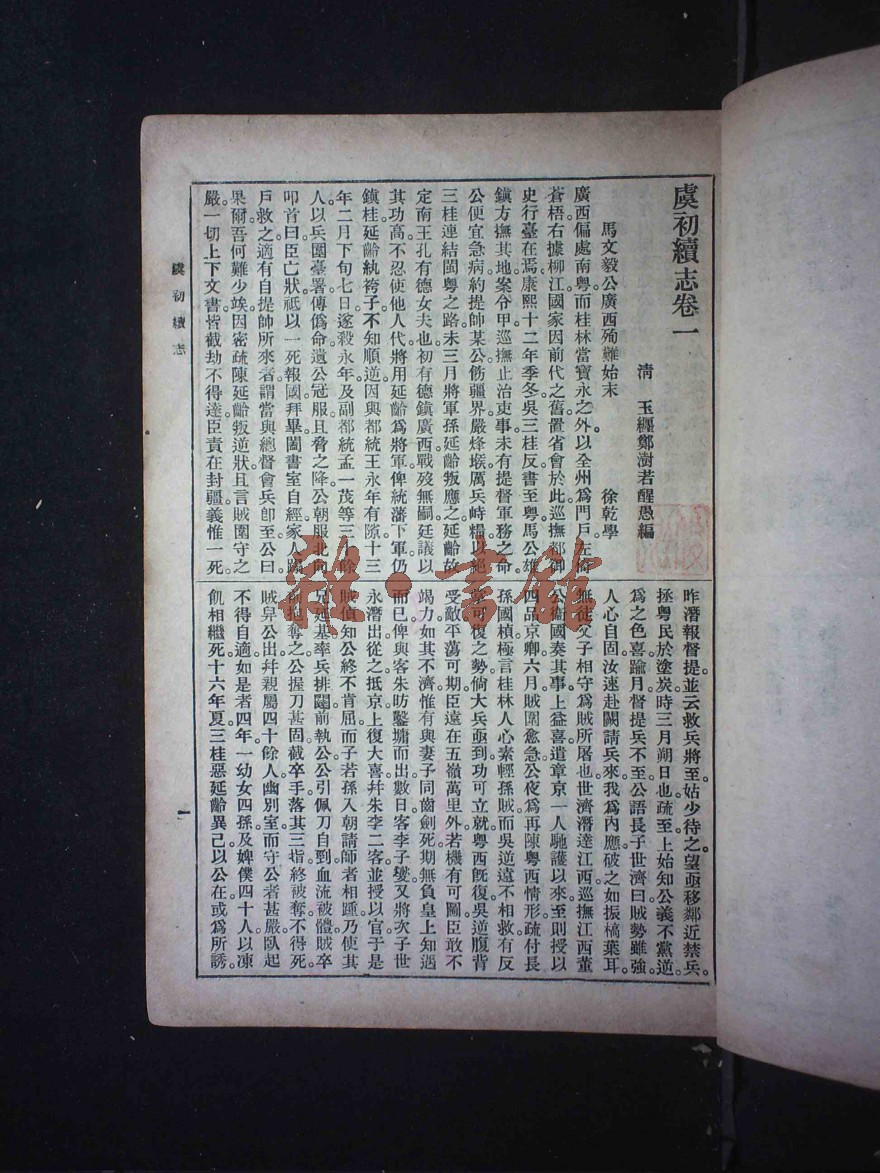 虞初續志卷一
清　玉纒鄭澍若醒愚編
馬文毅公廣西殉難始末　徐乾學
廣西偏處南粵而桂林當寶永之外以全州爲門戶左倚
蒼梧右據柳江國家因前代之舊置省會於此巡撫都御
史行臺在焉康熙十二年季冬吳三桂反書至粵馬公雄
鎮方撫其地案令甲巡撫止治吏事未有提督軍務之命
公便宜急病約提師某公飭疆界嚴烽堠厲兵峙糧以絕
三桂連結閩粵之路未三月將軍孫延齡叛應之延齡故
定南王孔有德女夫也初有德鎮廣西戰歿無嗣廷議以
其功高不忍使他人代將用延齡爲將軍俾統藩下軍仍
鎮桂延齡紈袴子不知順逆因與都統王永年有隙十三
年二月下旬七日遂殺永年及副都統孟一茂等三
人以兵圍臺署傳僞命遺公冠服且脅之降公朝服北向
叩首曰臣亡狀祗以一死報國拜畢闔書室自經家人踢
戶救之適有自提師所來者謂當與總督會兵卽至公曰
果爾吾何難少竢因密疏陳延齡叛逆狀且言賊圍守之
嚴一切上下文書皆截劫不得達臣責在封疆義惟一死
昨潛報督提並云救兵將至姑少待之望亟移鄰近禁兵
拯粵民於塗炭時三月朔日也疏至上始知公義不黨逆
爲之色喜踰月督提兵不至公語長子世濟曰賊勢雖強
人心自固汝速赴闕請兵來我爲內應破之如振槁葉耳
無徒父子相守爲賊所屠也世濟潛達江西巡撫江西董
公衞國奏其事上益喜遣章京一人馳護以來至則授以
四品京卿六月賊圍愈急公夜爲再陳粵西情形疏付長
孫國楨極言桂林人心素輕孫賊而吳逆遠不相救有反
可復之勢倘大兵亟到功可立就粵西旣復吳逆腹背
受敵平蕩可期臣遠在五嶺萬里外若機有可圖臣敢不
竭力如其不濟惟有與妻子同齒劍死期無負皇上知遇
而已俾與客朱昉鑿墉而出數日客李子燮又將次子世
永潛出從之抵京上復大喜幷朱李二客並授以官于是
賊偵知公終不肯屈而子若孫入朝請師者相踵乃使其
兄延基率兵排闥前執公公引佩刀自剄血流被體賊卒
前起奪之公握刀甚固截卒手落其三指終被奪不得死
賊舁公出幷親屬四十餘人幽別室而守公者甚嚴臥起
不得自適如是者四年一幼女四孫及婢僕四十人以凍
飢相繼死十六年夏三桂惡延齡異己以公在或爲所誘
虞初續志
一
雜·書館